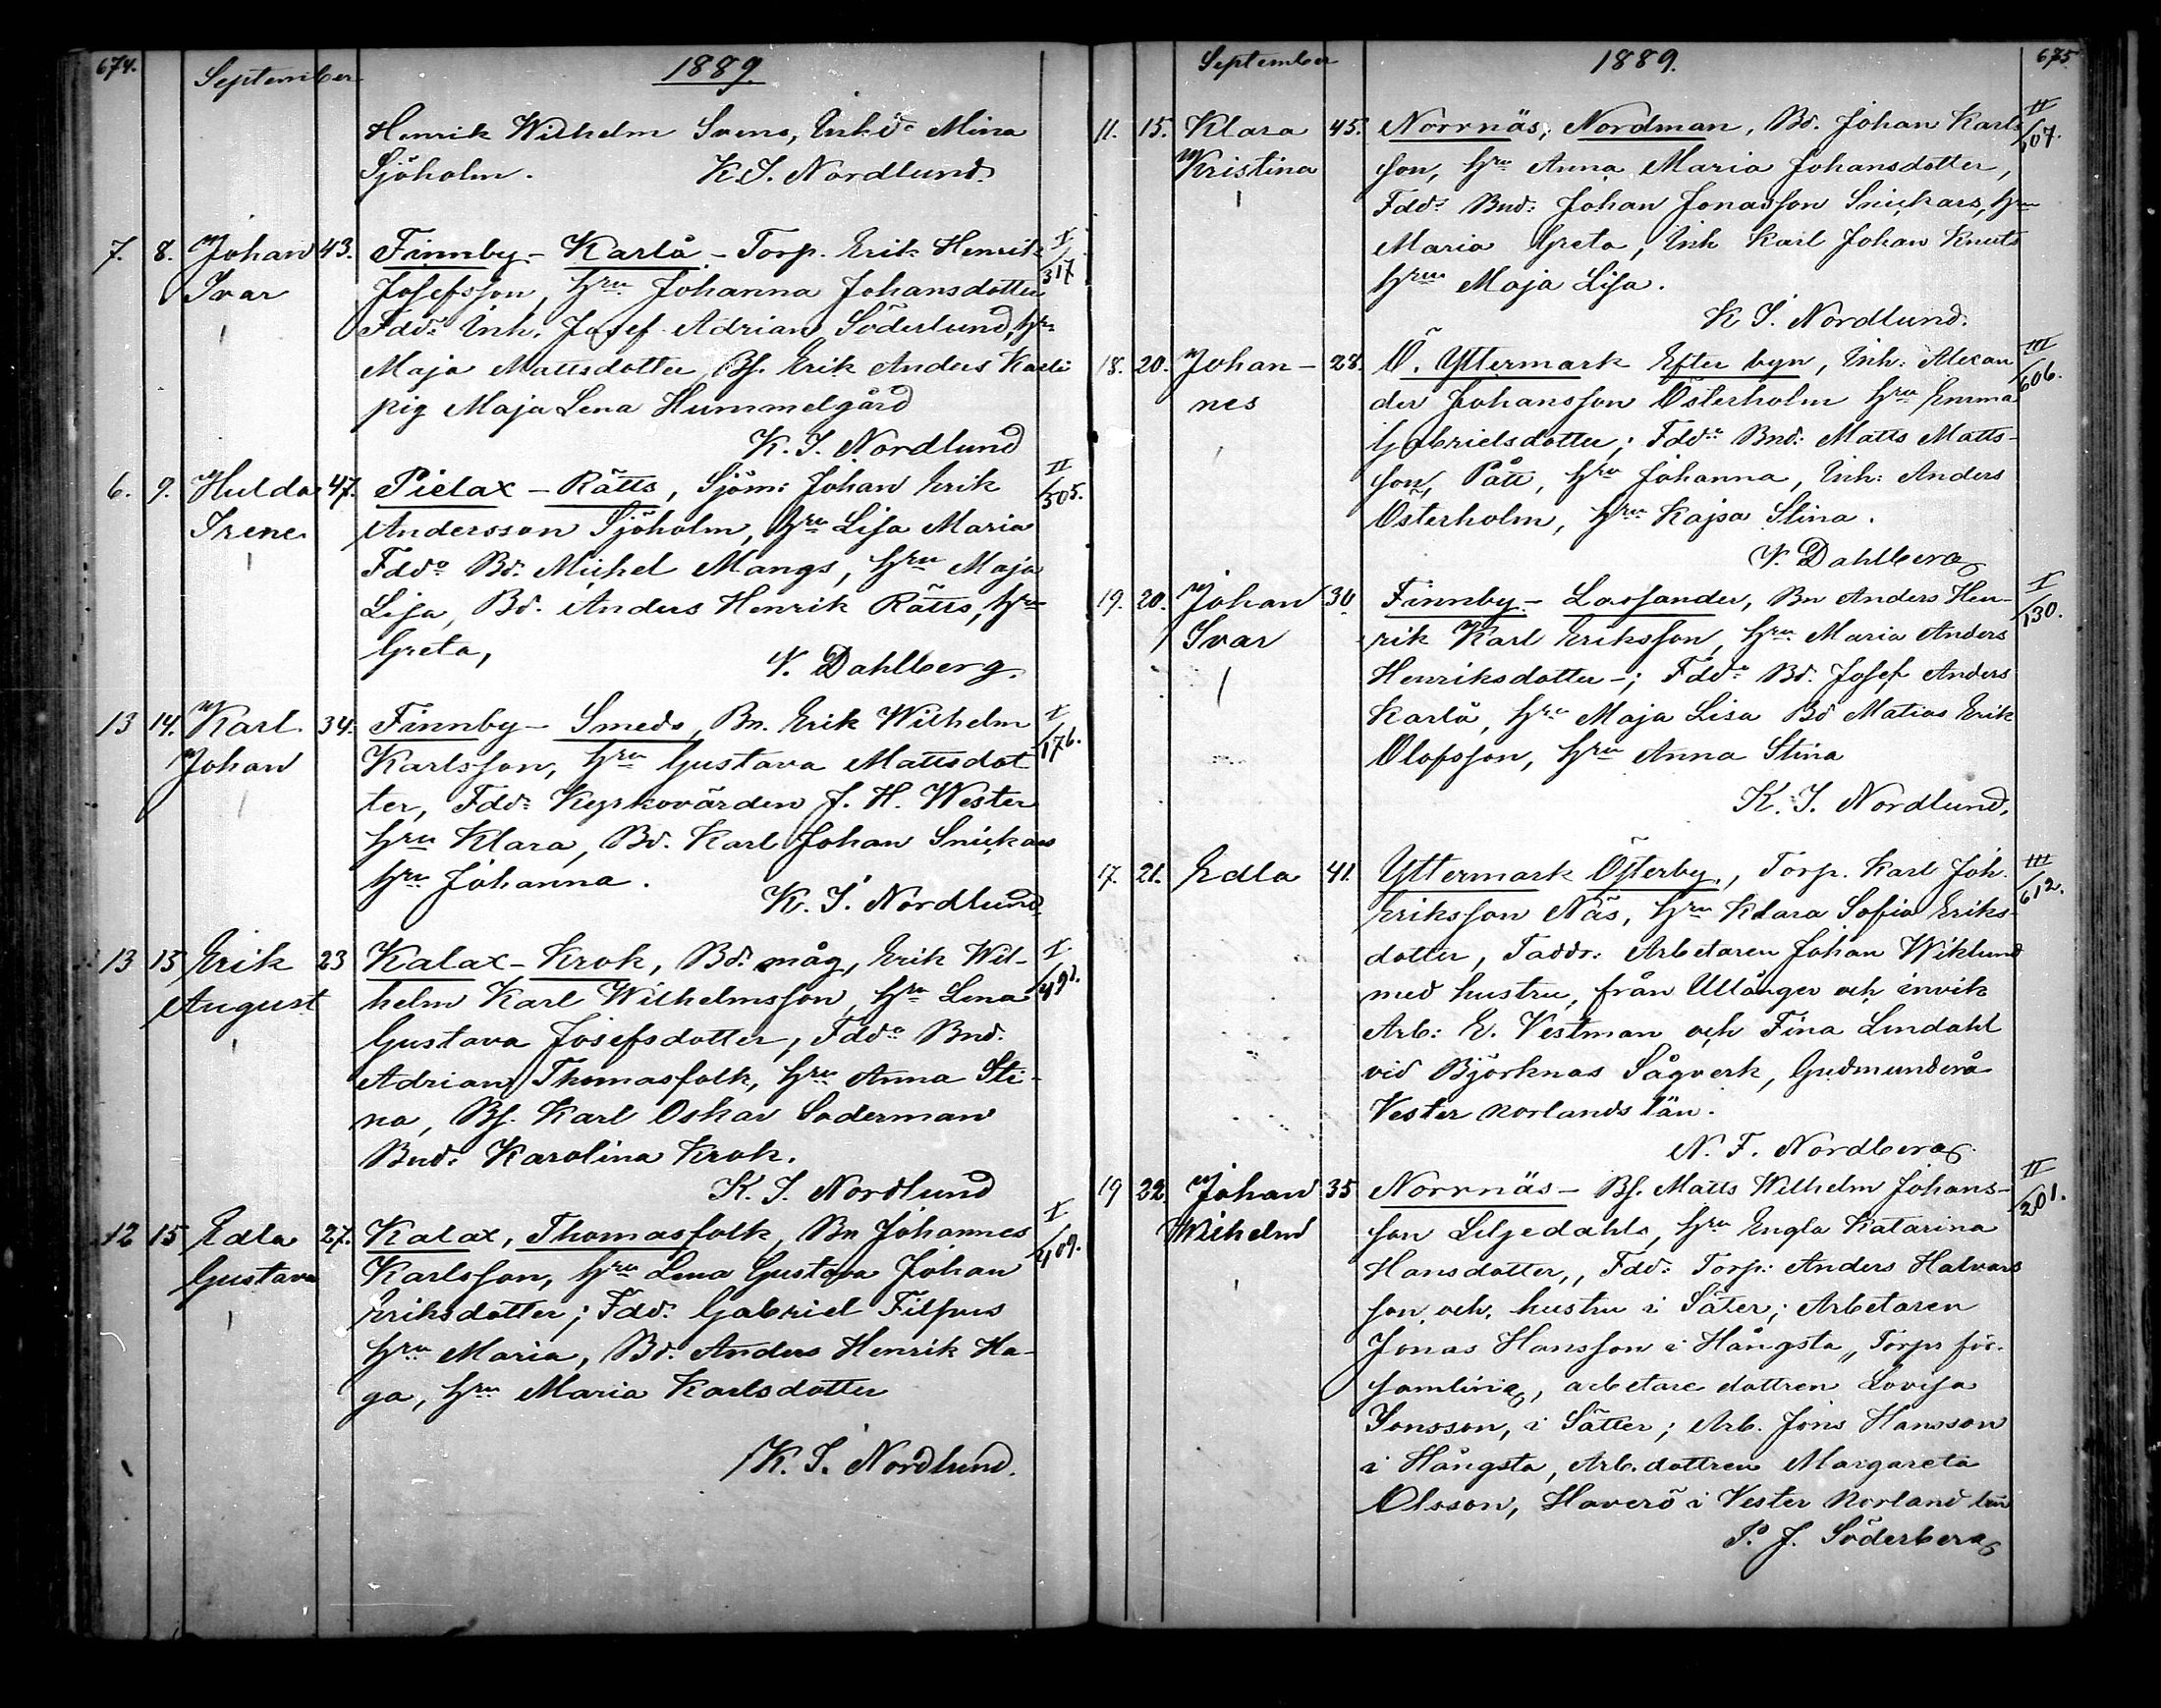 674.
September
1889.
Henrik Wilhelm Svens, Inhd: Mina
Sjöholm. K. I. Nordlund.
7. 8. Johan 43. Finnby - Karlå - Torp. Erik Henrik I/317
Ivar Josefsson, hru Johanna Johansdotter
Fdd: Inh. Josef Adrian Söderlund, hru
Maja Mattsdotter, Bs. Erik Anders Karlå
pig Maja Lena Hummelgård
K. I. Nordlund
6. 9. Hulda 47. Pielax - Rätts, Sjöm: Johan Erik II/505.
Irene. Andersson Sjöholm, hru Lisa Maria
Fddr Bd. Michel Mangs, hru Maja
Lisa, Bd. Anders Henrik Rätts, hru
Greta, V. Dahlberg.
13 14. Karl 34. Finnby - Smeds, Bn. Erik Wilhelm I/176.
Johan Karlsson, hru Gustava Mattsdot
ter, Fdd: Kyrkovärden J. H. Wester
hru Klara, Bd. Karl Johan Snickars
hru Johanna.
K. I. Nordlund.
13 15 Erik 23 Kalax - Krok, Bd. måg, Erik Wil- I
August helm Karl Wilhelmsson, hru Lena
Gustava Josefsdotter, Fddr Bnd.
Adrian Thomasfolk, hru Anna Sti-
na, Bs. Karl Oskar Soderman
Bnd: Karolina Krok.
K. I. Nordlund
12 15 Edla 27. Kalax, Thomasfolk, Bn Johannes I/409.
Gustava Karlsson, hru Lena Gustava Johan
Eriksdotter; Fdd: Gabriel Filpus
hru Maria, Bd. Anders Henrik Ha-
ga, hru Maria Karlsdotter
K. I. Nordlund.
September
1889.
675
11. 15. Klara 45. Norrnäs, Nordman, Bd. Johan Karls II/507.
Kristina son, hru Anna Maria Johansdotter,
Fdd: Bnd: Johan Jonasson Snickars, hru
Maria Greta, Inh Karl Johan Knuts
hru Maja Lisa.
K I. Nordlund.
18. 20. Johan- 28. Ö. Yttermark Efter byn, Inh: Alexan III/606.
nes der Johansson Österholm hru Emma
Gabrielsdotter; Fddr Bnd: Matts Matts-
son, Pått, hru Johanna, Inh: Anders
Österholm, hru Kajsa Stina.
V. Dahlberg
19. 20. Johan 30. Finnby - Lassander, Bn Anders Hen- I/130.
Ivar rik Karl Eriksson, hru Maria Anders
Henriksdotter -; Fddr Bd. Josef Anders
Karlå, hru Maja Lisa Bd Matias Erik
Olofsson, hru Anna Stina
K. I. Nordlund.
17. 21. Edla 41. Yttermark Österby, Torp. Karl Joh. III/612.
Eriksson Näs, hru Klara Sofia Eriks-
dotter, Faddr: Arbetaren Johan Wiklund
med hustru, från Ullånger och invik
Arb: E. Vestman och Fina Lindahl
vid Björknas Sågverk, Gudmunderå
Vester norlands län.
N. F. Nordberg.
19 22 Johan 35 Norrnäs - Bs. Matts Wilhelm Johans- II/201.
Wilhelm son Liljedahls, hru Engla Katarina
Hansdotter, Fdd: Torp: Anders Halvars
son och hustru i Säter; Arbetaren
Jonas Hansson i Hångsta, Torps för-
samling, arbetare dottren Lovisa
Jonsson, i Sätter; Arb. Jöns Hansson
i Hångsta, Arb. dottren Margareta
Olsson, Haverö i Vester Norland län
P. J. Söderberg